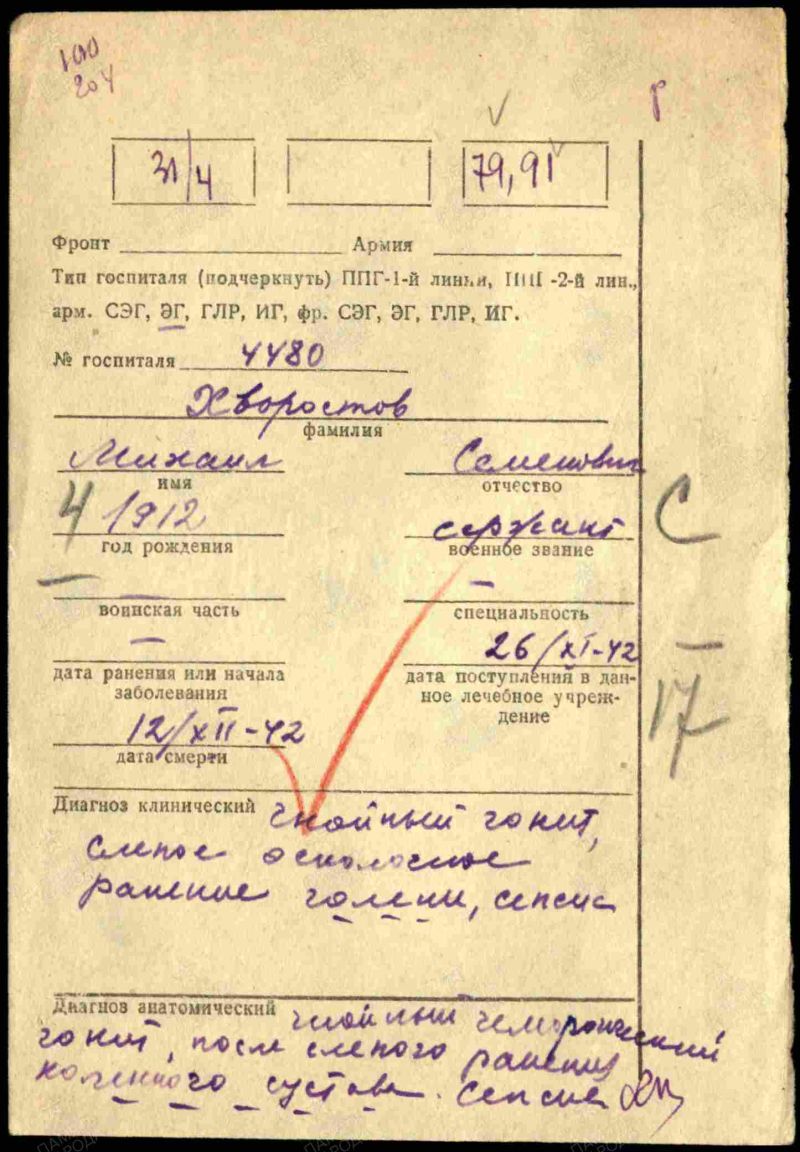 100
204
31/4
79,91
Фронт Армия
Тип госпиталя (подчеркнуть) ППГ-1-й линии, ППГ-2-й лин.,
арм. СЭГ, ЭГ, ГЛР, ИГ, фр. СЭГ, ЭГ, ГЛР, ИГ.
№ госпиталя 4480
Хворостов
фамилия
Михаил Семенович
имя отчество
4 1912 сержант С
год рождения военное звание
— — —
воинская часть специальность
— 26/XI-42 —
дата ранения или начала дата поступления в дан-
заболевания ное лечебное учреж-
дение
12/XII-42 17
дата смерти
Диагноз клинический гнойный гонит,
слепое осколочное
ранение голени, сепсис
Диагноз анатомический гнойный геморрагический
гонит, после слепого ранения
коленного сустава. Сепсис